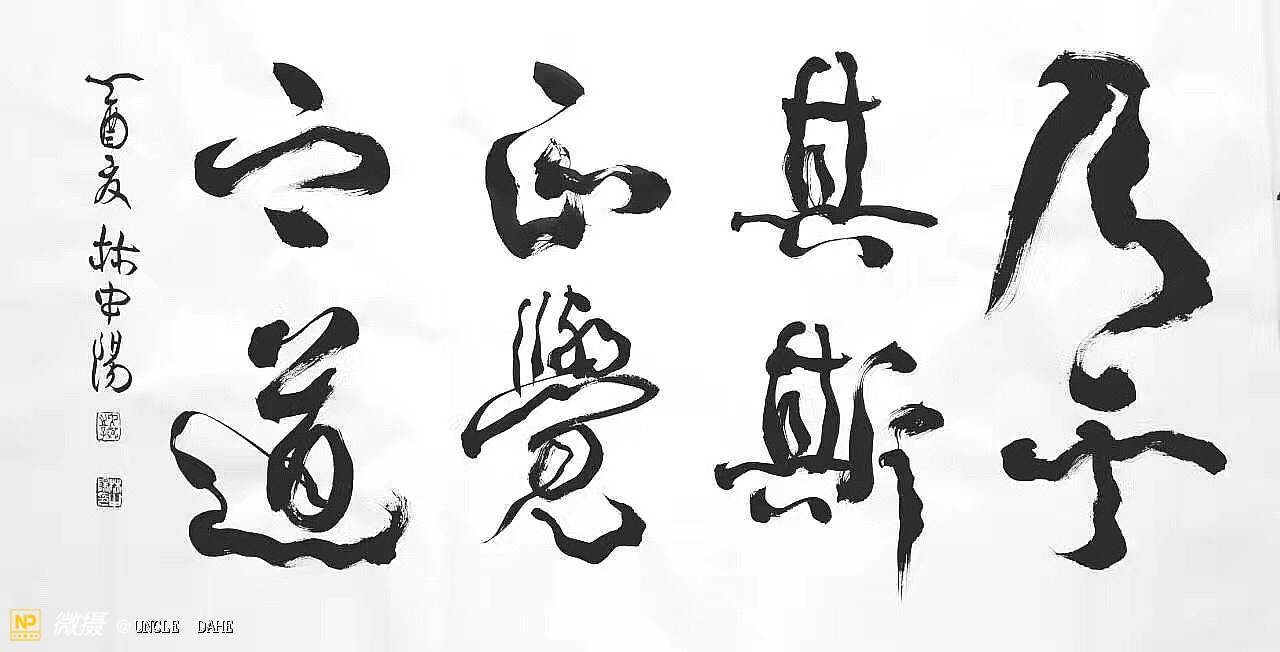 乃于
其斯
正覺
之道
丁酉夏 林中陽
NP 微摄 @UNCLE DAHE